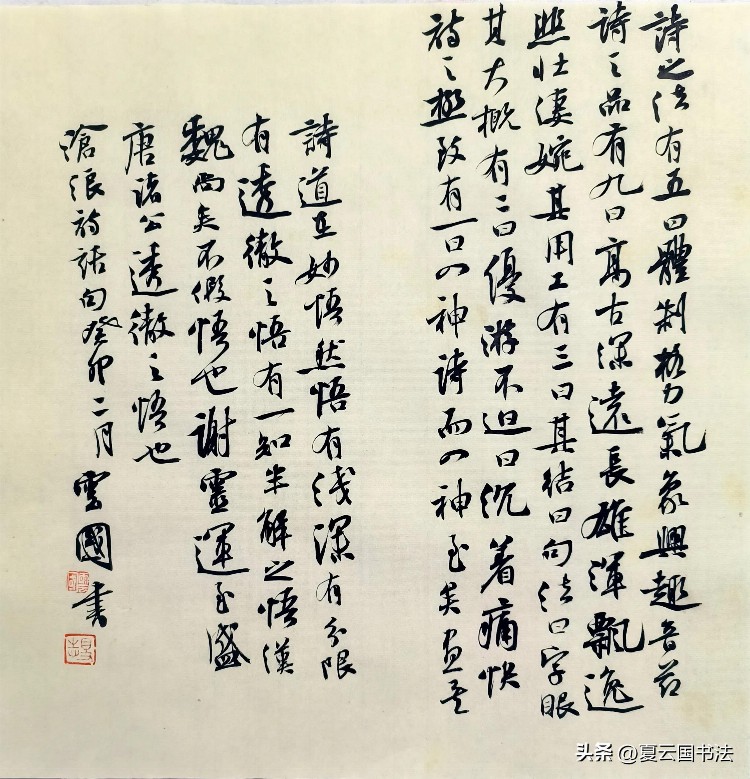 詩之法有五曰體制格力氣象興趣音节
詩之品有九曰高古深遠長雄渾飄逸
悲壮淒婉其用工有三曰其結曰句法曰字眼
其大概有二曰優游不迫曰沉着痛快
詩之極致有一曰入神詩而入神至矣
詩道在妙悟然悟有浅深有分限
有透徹之悟有一知半解之悟漢
魏尚矣不假悟也謝靈運至盛
唐諸公透徹之悟也
滄浪詩話句癸卯二月雲國书
头条 @夏云国书法